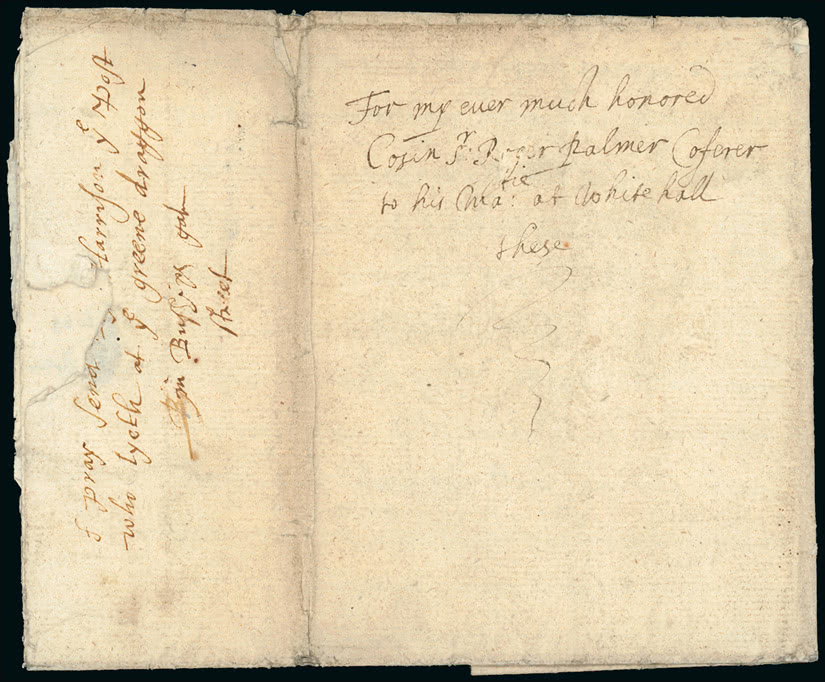 For my ever much honored
Cosin Sr. Roger Palmer Coferer
to his Matie: at Whitehall
these
I pray send Harrison ye Post
who lyeth at ye greene draggon
in Bushops gate
street